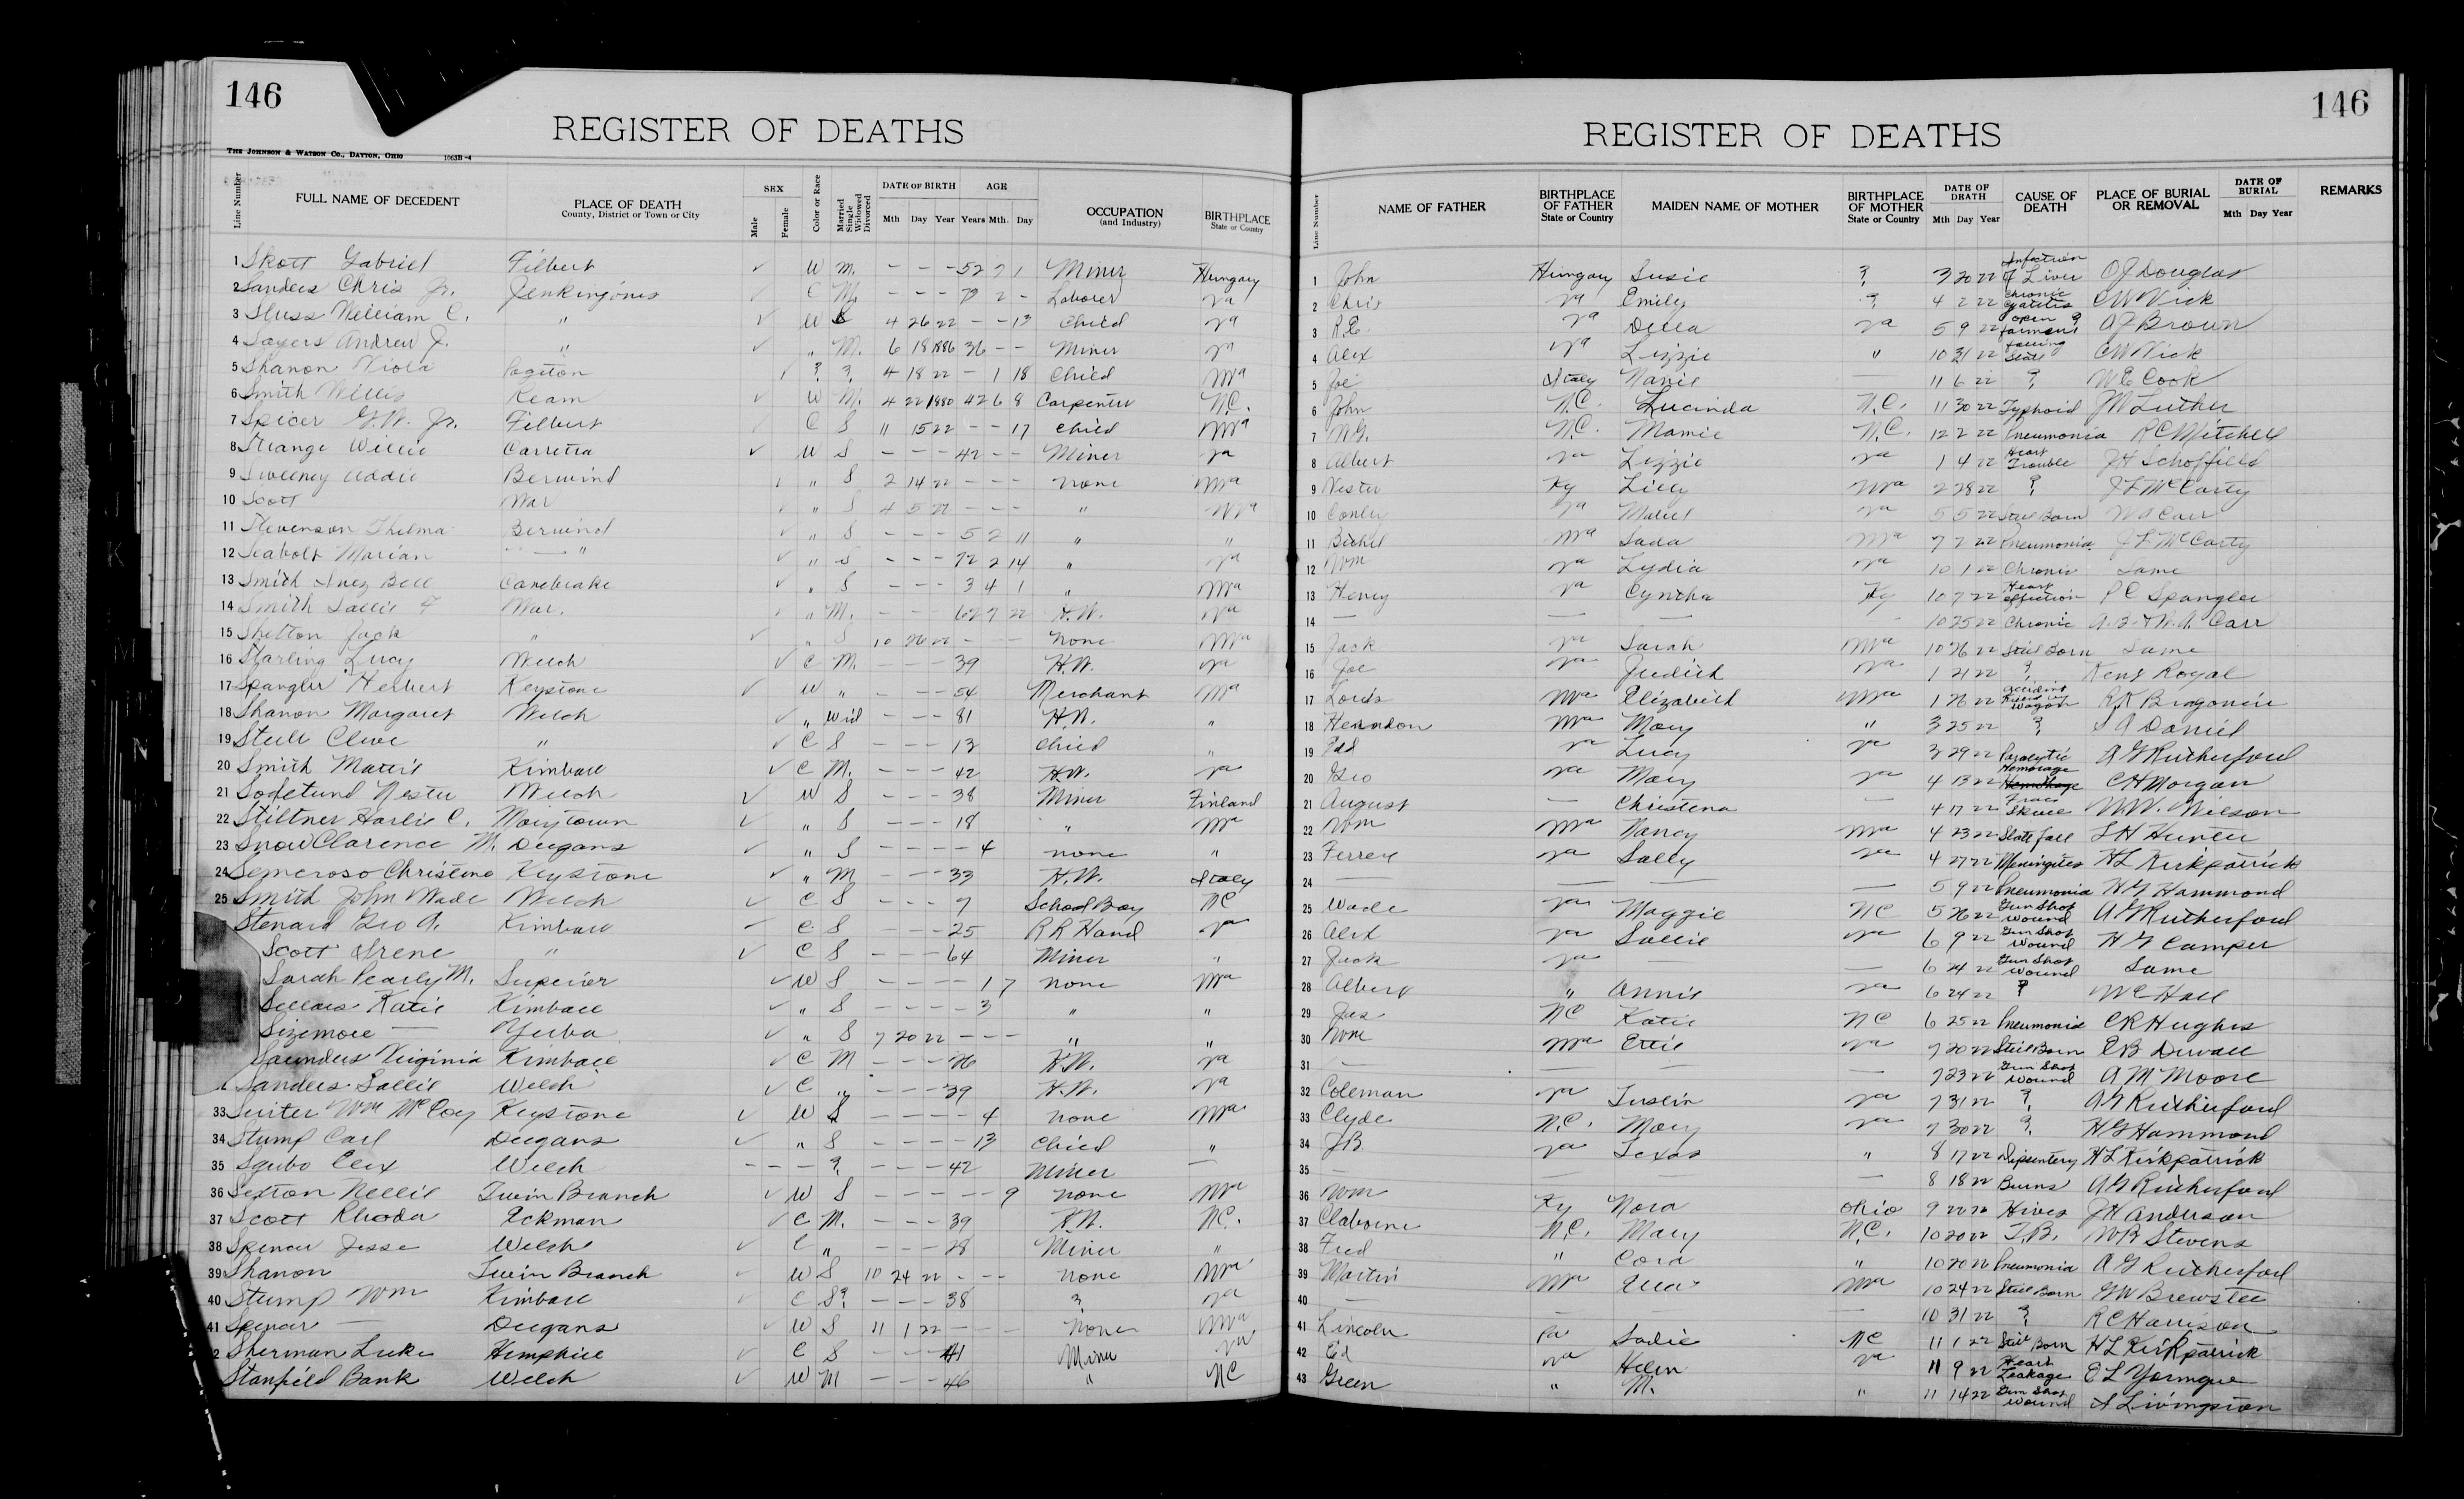 146
REGISTER OF DEATHS
THE JOHNSON & WATSON CO., DAYTON, OHIO 1063B-4
Line Number FULL NAME OF DECEDENT PLACE OF DEATH County, District or Town or City SEX Male Female Color or Race Married Single Widowed Divorced DATE OF BIRTH Mth Day Year AGE Years Mth. Day OCCUPATION (and Industry) BIRTHPLACE State or Country
1 Skott Gabriel Filbert ✓ W M. - - - 52 7 1 Miner Hungary
2 Sanders Chris Jr. Jenkinjones ✓ C M. - - - 2 - Laborer Va
3 Sluss William C. " ✓ W S 4 26 22 - - 13 Child Va
4 Sayers Andrew J. " ✓ " M. 6 18 1886 36 - - Miner Va
5 Shanon Viola ✓ ? ? 4 18 22 - 1 18 Child Wva
6 Smith Willis Ream ✓ W M. 4 22 1880 42 6 8 Carpenter N.C.
7 Spicer G.W. Jr. Filbert ✓ C S 11 15 22 - - 17 Child Wva
8 Strange Willie Carretta ✓ W S - - - 42 - - Miner Va
9 Sweeney Addie Berwind ✓ " S 2 14 22 - - - none Wva
10 Scott War ✓ " S 4 5 22 - - - " Wva
11 Stevenson Thelma Berwind ✓ " S - - - 5 2 11 " "
12 Seabolt Marian " ✓ " S - - - 72 2 14 " Va
13 Smith Inez Bell Canebrake ✓ " S - - - 3 4 1 " Wva
14 Smith Sallie F War. ✓ " M. - - - 62 7 22 H.W. Va
15 Shelton Jack " ✓ " S 10 26 22 - - - none Wva
16 Starling Lucy Welch ✓ C M. - - - 39 H.W. Va
17 Spangler Herbert Keystone ✓ W " - - - 54 Merchant Wva
18 Shanon Margaret Welch ✓ " Wid - - - 81 H.W. "
19 Steele Clive " ✓ C S - - - 13 Child "
20 Smith Mattie Kimball ✓ C M. - - - 42 H.W. Va
21 Nester Welch ✓ W S - - - 38 Miner Finland
22 Stiltner Harlie C. Maytown ✓ " S - - - 18 " Wva
23 Snow Clarence M. Deegans ✓ " S - - - - 4 none "
24 Semeroso Christine Keystone ✓ " M - - - 33 H.W. Italy
25 Smith John Wade Welch ✓ C S - - - 7 School Boy NC
Stenard Geo A. Kimball ✓ C S - - - 25 R R Hand Va
Scott Irene " ✓ C S - - - 64 Miner "
Sarah Pearly M. Superior ✓ W S - - - - 1 7 none Wva
Sellars Katie Kimball ✓ " S - - - - 3 " "
Sizemore — Yerba ✓ " S 7 20 22 - - - " "
Saunders Virginia Kimball ✓ C M - - - 26 H.W. Va
Sanders Sallie Welch ✓ C " - - - 39 H.W. Va
33 Suiter Wm McCoy Keystone ✓ W S - - - - 4 none Wva
34 Stump Carl Deegans ✓ " S - - - - 13 Child "
35 Welch - - - ? - - - 42 Miner —
36 Sexton Nellie Twin Branch ✓ W S - - - - - 9 none Wva
37 Scott Rhoda Eckman ✓ C M. - - - 39 H.W. NC.
38 Spencer Jesse Welch ✓ C " - - - 28 Miner "
39 Shanon Twin Branch ✓ W S 10 24 22 - - - none Wva
40 Stump Wm Kimball ✓ C S? - - - 38 ? Va
41 Spencer — Deegans ✓ W S 11 1 22 - - - None Wva
2 Sherman Luke Hemphill ✓ C S - - - 41 Miner Va
Stanfield Bank Welch ✓ W M - - - 46 " NC
146
REGISTER OF DEATHS
Line Number NAME OF FATHER BIRTHPLACE OF FATHER State or Country MAIDEN NAME OF MOTHER BIRTHPLACE OF MOTHER State or Country DATE OF DEATH Mth Day Year CAUSE OF DEATH PLACE OF BURIAL OR REMOVAL DATE OF BURIAL Mth Day Year REMARKS
1 John Hungary Susie ? 3 20 22 Infection of Liver O J Douglas
2 Chris Va Emily ? 4 2 22 Chronic C W Vick
3 R.E. Va Della Va 5 9 22 Open ? A J Brown
4 Alex Va Lizzie " 10 31 22 falling Slate C W Vick
5 Joe Italy Nanie — 11 6 22 ? W E Cook
6 John N.C. Lucinda N.C. 11 30 22 Typhoid J W Luther
7 N.C. Mamie N.C. 12 2 22 Pneumonia R C Mitchell
8 Albert Va Lizzie Va 1 4 22 Heart Trouble J H Schoffield
9 Nester Ky Lilly Wva 2 28 22 ? J L McCarty
10 Conley Va Mabel Va 5 5 22 Still Born W A Carr
11 Wva Sada Wva 7 2 22 Pneumonia J L McCarty
12 Wm Va Lydia Va 10 1 22 Chronic Same
13 Henry Va Cyntha Ky 10 7 22 Heart affection P C Spangler
14 — — — - 10 25 22 Chronic A. B. & W. A. Carr
15 Jack Va Sarah Wva 10 26 22 Still Born Same
16 Joe Va Judith Va 1 21 22 ? Kent Royal
17 Louis Wva Elizabeth Wva 1 26 22 accident wagon R K Bragonier
18 Herndon Wva Mary " 3 25 22 ? S A Daniel
19 Edd Va Lucy Va 3 29 22 Paralytic A G Rutherford
20 Geo Va Mary Va 4 13 22 Hemorage C H Morgan
21 August — Christena — 4 17 22 Frac Skull W. W. Wilson
22 Wm Wva Nancy Wva 4 23 22 Slate fall L H Hunter
23 Ferrell Va Sally Va 4 27 22 Meningites H L Kirkpatrick
24 — — — — 5 9 22 Pneumonia H G Hammond
25 Wade Va Maggie NC 5 26 22 Gun Shot wound A G Rutherford
26 Alex Va Sallie Va 6 9 22 Gun Shot Wound H G Camper
27 Jack Va — — 6 24 22 Gun Shot wound Same
28 Albert " Annie Va 6 24 22 ? W C Hall
29 Jas NC Katie NC 6 25 22 Pneumonia C R Hughes
30 Wm Wva Ettie Va 7 20 22 Still Born E B Duvall
31 — — — — 7 23 22 Gun Shot wound A M Moore
32 Coleman Va Va 7 31 22 ? A G Rutherford
33 Clyde N.C. Mary Va 7 30 22 ? H G Hammond
34 J B Va Texas " 8 17 22 Dipsentery H L Kirkpatrick
35 — — — 8 18 22 Burns A G Rutherford
36 Wm Ky Nora Ohio 9 22 Hives J H Anderson
37 Claborne N.C. Mary N.C. 10 20 22 T.B. W R Stevens
38 Fred " Cora " 10 20 22 Pneumonia A G Rutherford
39 Martin Wva Ella Wva 10 24 22 Still Born G W Brewster
40 — — — — 10 31 22 ? R C Harrison
41 Lincoln Pa Sadie NC 11 1 22 Still Born H L Kirkpatrick
42 Ed Va Helen Va 11 9 22 Heart Leakage E L Youngue
43 Green " M. " 11 14 22 Gun Shot wound A Livingston